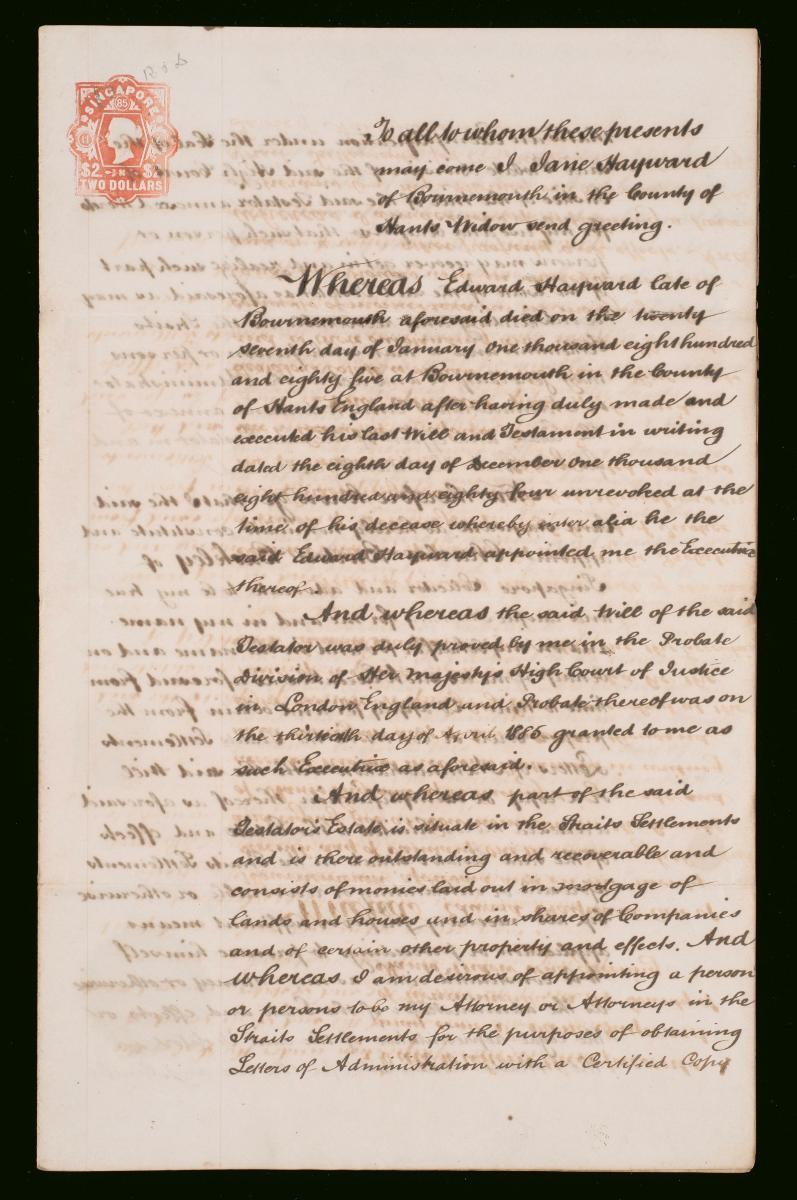 SINGAPORE
85
$2 $2
TWO DOLLARS
To all to whom these presents
may come I Jane Hayward
of Bournemouth in the County of
Hants Widow send greeting.
Whereas Edward Hayward late of
Bournemouth aforesaid died on the twenty
seventh day of January One thousand eight hundred
and eighty five at Bournemouth in the County
of Hants England after having duly made and
executed his last Will and Testament in writing
dated the eighth day of December One thousand
eight hundred and eighty four unrevoked at the
time of his decease whereby inter alia he the
said Edward Hayward appointed me the Executrix
thereof.
And whereas the said Will of the said
Testator was duly proved by me in the Probate
Division of Her Majesty's High Court of Justice
in London England and Probate thereof was on
the thirtieth day of April 1885 granted to me as
such Executrix as aforesaid.
And whereas part of the said
Testator's Estate is situate in the Straits Settlements
and is there outstanding and recoverable and
consists of monies laid out in mortgage of
lands and houses and in shares of Companies
and of certain other property and effects. And
whereas I am desirous of appointing a person
or persons to be my Attorney or Attorneys in the
Straits Settlements for the purposes of obtaining
Letters of Administration with a Certified Copy